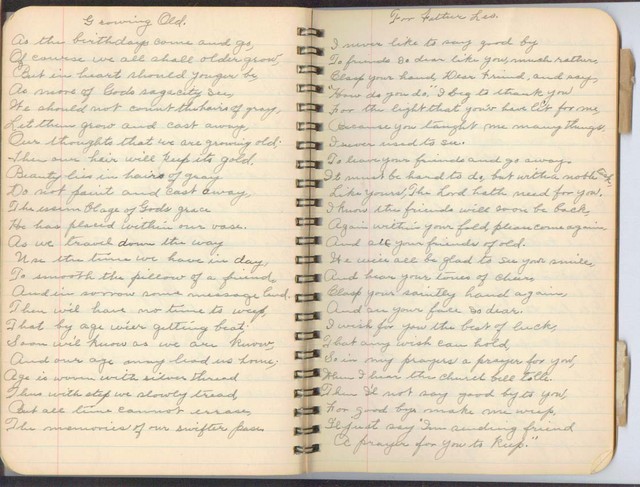 Growing Old.
As the birthdays come and go,
Of course we all shall older grow,
But in heart should younger be
As more of Gods sagecity see,
We should not count the hairs of gray,
Let them grow and cast away,
Our thoughts that we are growing old.
Then our heir will keep its gold,
Beauty lies in hairs of gray
Do not paint and cast away,
The of Gods grace
He has placed within our vase.
As we travel down the way
Use the time we have in day,
To smooth the pillow of a friend,
And in sorrow some message send.
Then we'll have no time to weep,
That by age wier getting beat
Soon we'll know as we are know,
And our age may lead us home;
Age is worn with silver thread
Thus with step we slowly tread,
But all time cannot erase,
The memories of our swifter pace.
For Father Les.
I never like to say good by
To friends so dear like you, much rather,
Clasp your hand, Dear Friend, and say,
"How do you do." I beg to thank you
For the light that you've have lit for me,
Because you taught me many things
I never used to see.
To leave your friends and go away
It must be hard to do, but with a noble
Like yours, The Lord hath need for you.
I know the friends will soon be back,
Again within your fold, please come again
And all your friends of old.
We will all be glad to see your smile,
And hear your tones of cheer
Clasp your saintly hand again,
And see your face so dear.
I wish for you the best of luck,
That any wish can hold,
So in my prayers a prayer for you,
When I hear the church bell tolls.
Then I'll not say good by to you,
For good bys make me weep,
I'll just say "I'm sending friend
A prayer for you to keep."